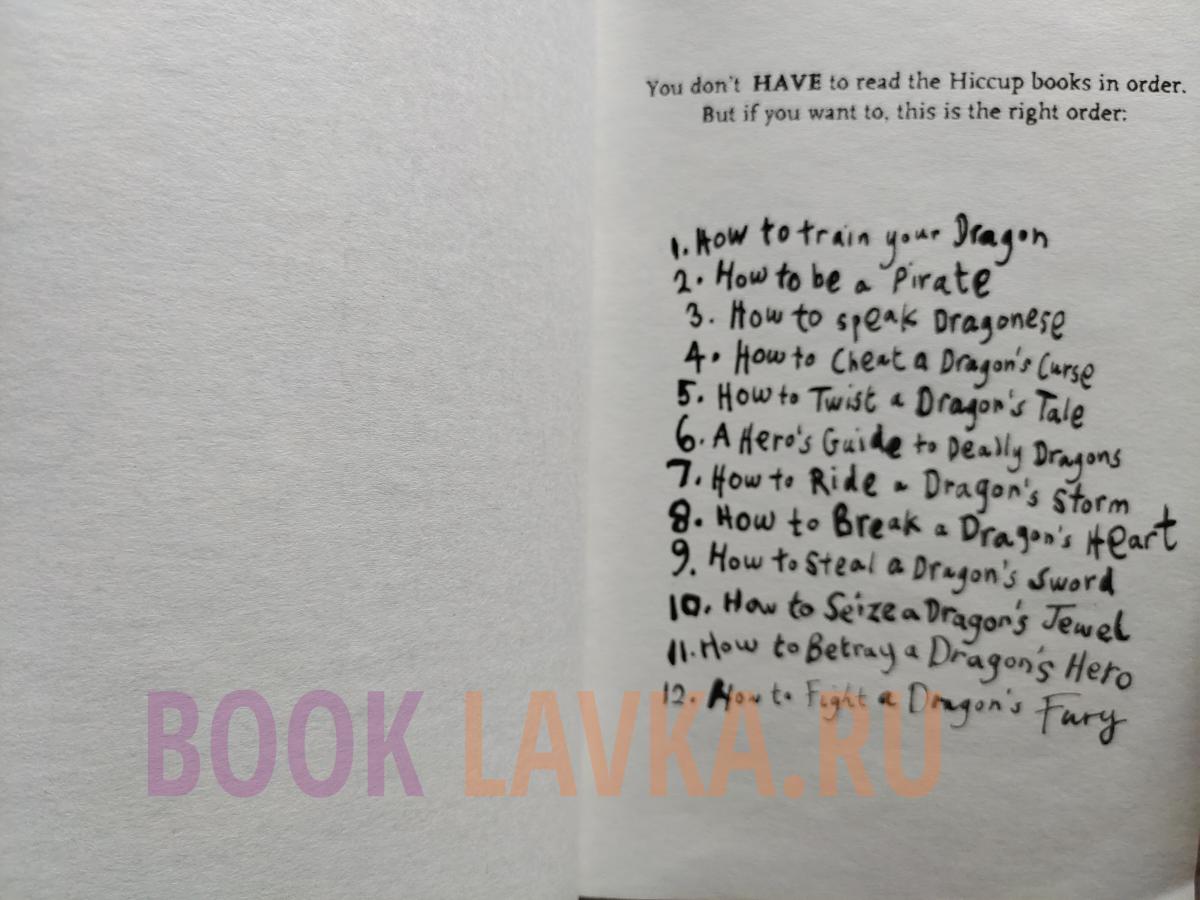 You don't HAVE to read the Hiccup books in order.
But if you want to, this is the right order:
1. How to train your Dragon
2. How to be a Pirate
3. How to speak Dragonese
4. How to Cheat a Dragon's Curse
5. How to Twist a Dragon's Tale
6. A Hero's Guide to Deadly Dragons
7. How to Ride a Dragon's Storm
8. How to Break a Dragon's Heart
9. How to Steal a Dragon's Sword
10. How to Seize a Dragon's Jewel
11. How to Betray a Dragon's Hero
12. How to Fight a Dragon's Fury
BOOK LAVKA.RU